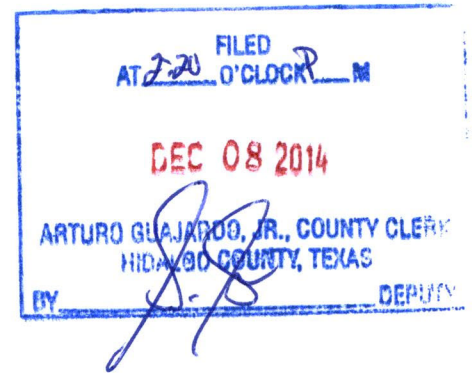 FILED
AT 2:20 O'CLOCK P M
DEC 08 2014
ARTURO GUAJARDO, JR., COUNTY CLERK
HIDALGO COUNTY, TEXAS
BY DEPUTY